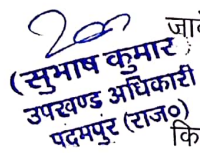 जावे
(सुभाष कुमार)
उपखण्ड अधिकारी
पदमपुर (राज०)
कि